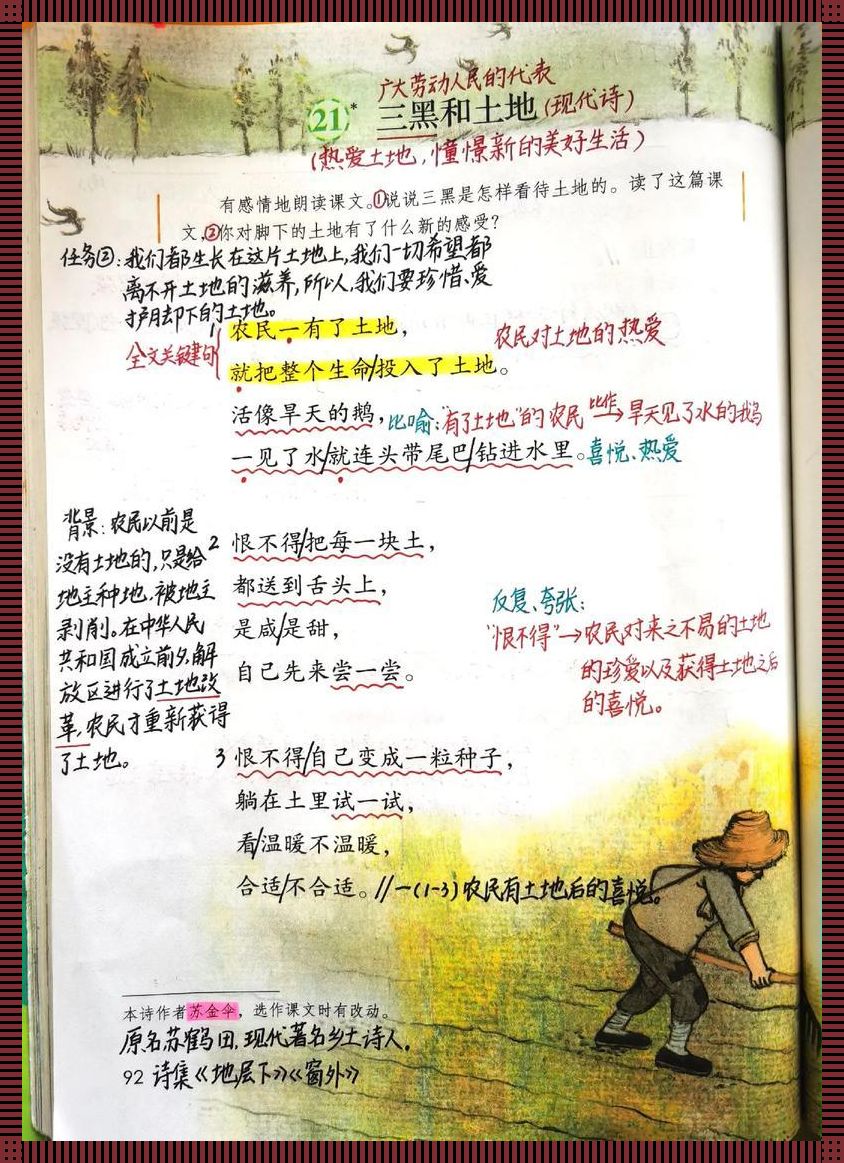 广大劳动人民的代表
21* 三黑和土地(现代诗)
(热爱土地,憧憬新的美好生活)
有感情地朗读课文。①说说三黑是怎样看待土地的。读了这篇课
文,②你对脚下的土地有了什么新的感受?
任务②:我们都生长在这片土地上,我们一切希望都
离不开土地的滋养,所以,我们要珍惜、爱
护脚下的土地。
1 农民一有了土地,
全文关键句
农民对土地的热爱
就把整个生命/投入了土地。
活像旱天的鹅,比喻:"有了土地"的农民 比作→ 旱天见了水的鹅
一见了水/就连头带尾巴/钻进水里。喜悦、热爱
背景:农民以前是
没有土地的,只是给
地主种地,被地主
剥削。在中华人民
共和国成立前夕,解
放区进行了土地改
革,农民才重新获得
了土地。
2 恨不得/把每一块土,
都送到舌头上,
是咸/是甜,
自己先来尝一尝。
反复、夸张:
"恨不得"→农民对来之不易的土地
的珍爱以及获得土地之后
的喜悦。
3 恨不得/自己变成一粒种子,
躺在土里试一试,
看/温暖不温暖,
合适/不合适。//一(1-3)农民有土地后的喜悦。
本诗作者苏金伞,选作课文时有改动。
原名苏鹤田,现代著名乡土诗人。
92 诗集《地层下》《窗外》